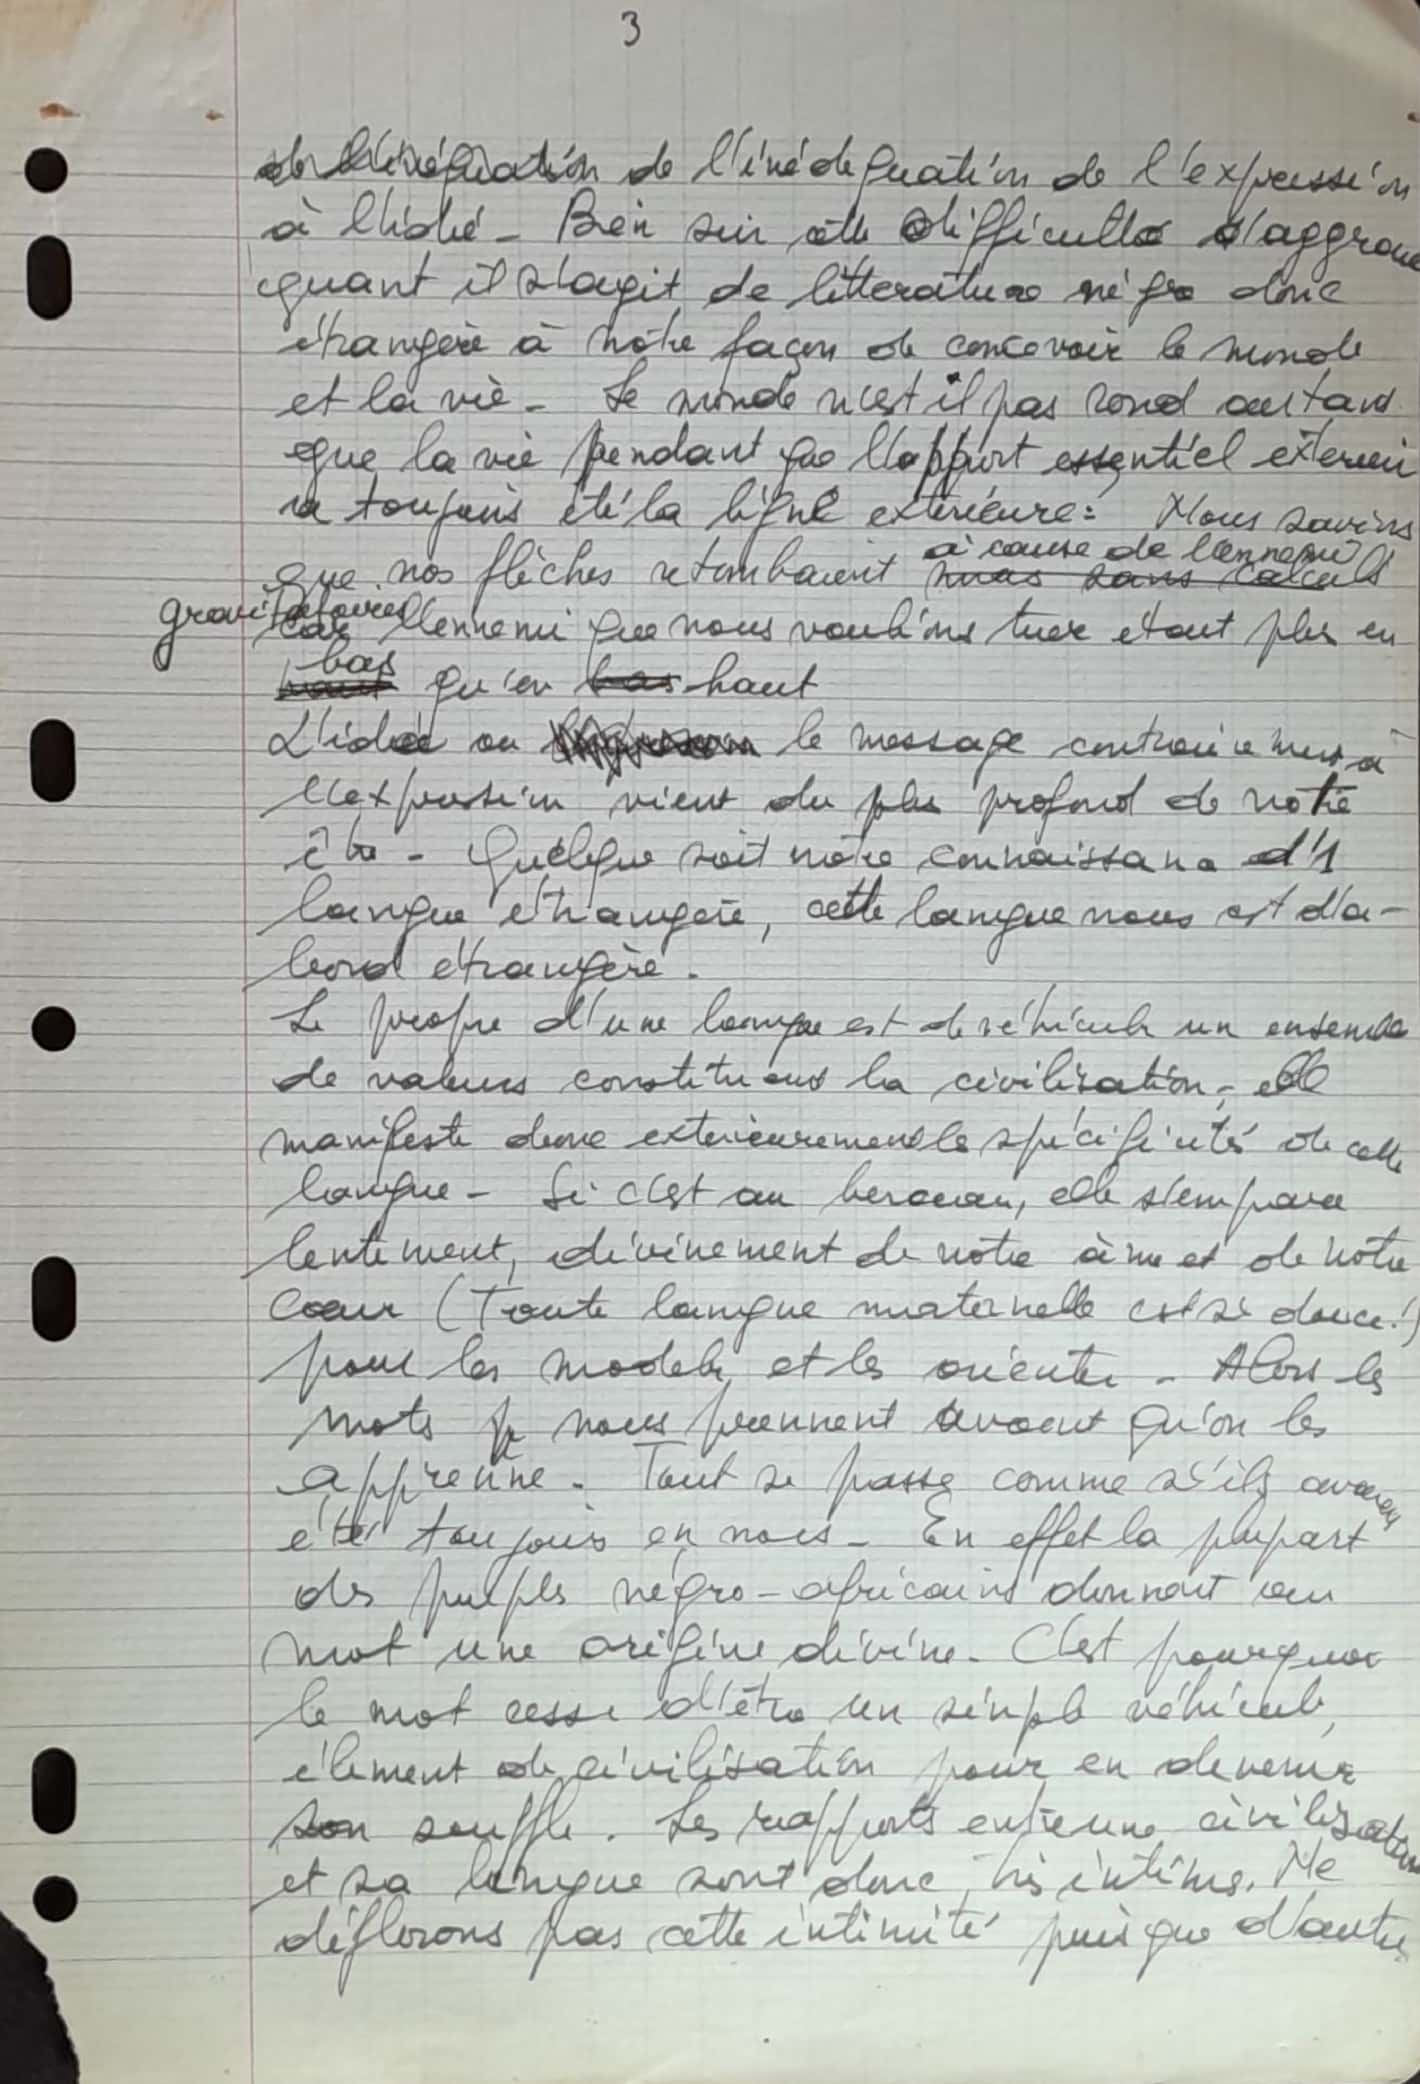 3
de l'inéquation de l'inédequation de l'expression
à l'idée - Bien sûr cette difficulté s'aggrave
quant il s'agit de litterature négre donc
étrangère à notre façon de concevoir le monde
et la vie - Le monde n'est il pas rond autant
que la vie pendant que l'apport essentiel exterieur
a toujours été la ligne exterieure : Nous savions
à cause de l'ennemi
que nos flèches retombaient mais sans calculs
gravitatoires
car l'ennemi que nous voulions tuer était plus en
bas
haut qu'en bas haut
L'idée ou le message contrairement à
l'expression vient du plus profond de notre
être - Quelque soit notre connaissance d'1
langue étrangère, cette langue nous est d'a-
bord étrangère.
Le propre d'une langue est de véhiculer un ensemble
de valeurs constituant la civilisation - elle
manifeste donc exterieurement les spécificités de cette
langue - Si c'est au berceau, elle s'empare
lentement, divinement de notre âme et de notre
Coeur (Toute langue maternelle est si douce !)
pour les modeler et les orienter - Alors les
mots nous prennent avant qu'on les
apprenne - Tout se passe comme s'ils avaient
été toujours en nous - En effet la plupart
des peuples négro-africains donnent au
mot une origine divine - C'est pourquoi
le mot cesse d'être un simple véhicule,
élement de civilisation pour en devenir
son souffle. Les rapports entre une civilisation
et sa langue sont donc très intimes. Ne
déflorons pas cette intimité puisque d'autres